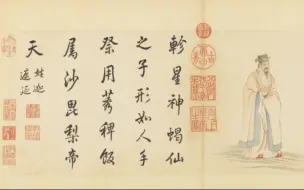 軫星神蝎仙
之子形如人手
祭用莠稗飯
屬沙毘梨帝
天 姓迦
遮延